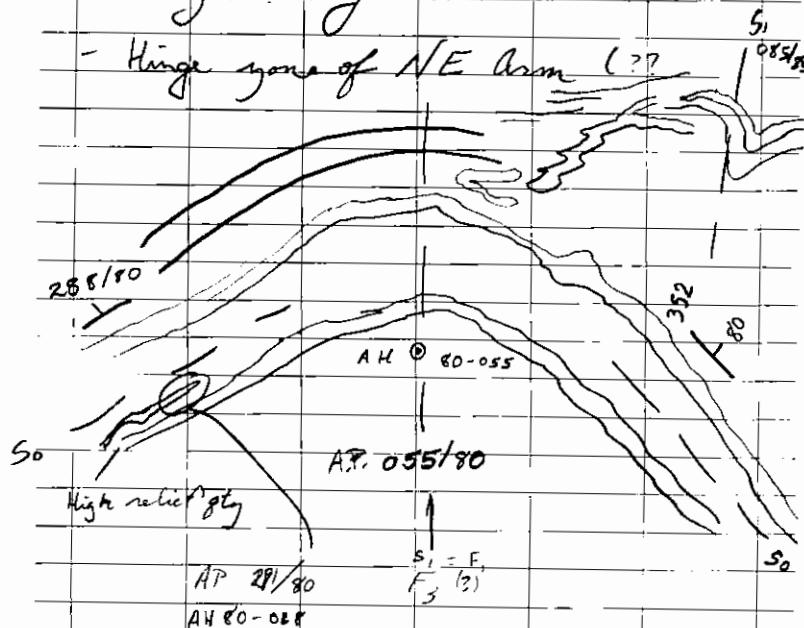 - Hinge zone of NE Arm (??
S1
085/80
288/80
352
80
AH 80-055
S0
A.P. 055/80
High relief qtz
S1 = F1
F3 (?)
S0
AP 291/80
AH 80-028